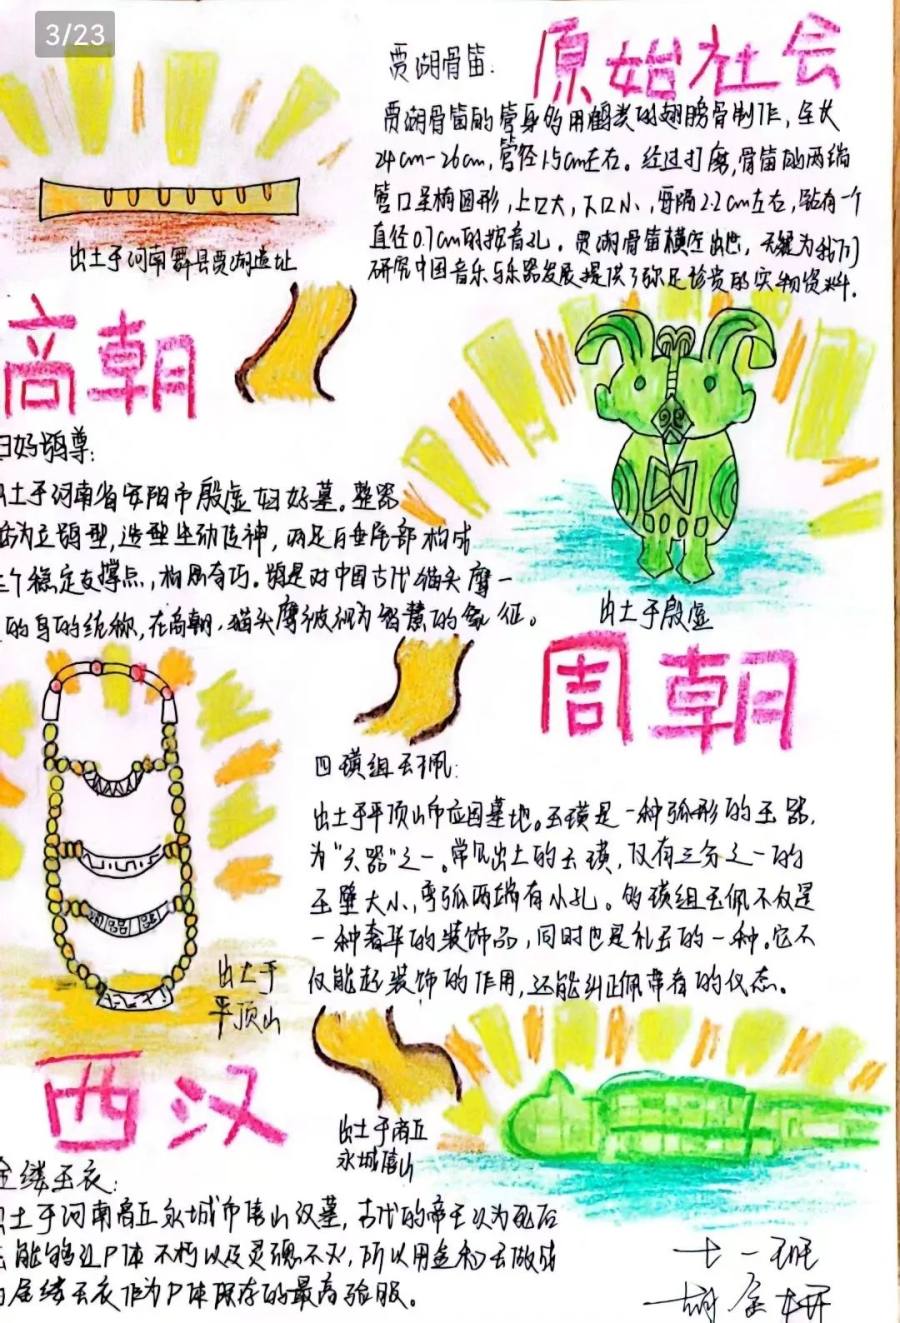 3/23
原始社会
贾湖骨笛:
贾湖骨笛的管身多用鹤类的翅膀骨制作,全长
24cm-26cm,管径1.5cm左右。经过打磨,骨笛的两端
管口呈椭圆形,上口大,下口小,每隔2.2cm左右,钻有一个
直径0.7cm的按音孔。贾湖骨笛横空出世,无疑为我们
研究中国音乐与乐器发展提供了弥足珍贵的实物资料.
出土于河南舞县贾湖遗址
商朝
妇好鸮尊:
出土于河南省安阳市殷虚妇好墓。整器
为立鸮型,造型生动传神,两足与垂尾部构成
三个稳定支撑点,构思奇巧。鸮是对中国古代猫头摩一
的身的统称,在商朝,猫头摩被视为智慧的象征。
出土于殷虚
周朝
四璜组玉佩:
出土于平顶山市应国墓地。玉璜是一种弧形的玉器,
为“六器”之一。常见出土的玉璜,仅有三分之一的
玉璧大小,弯弧两端有小孔。的璜组玉佩不仅是
一种奢华的装饰品,同时也是礼玉的一种。它不
仅能起装饰的作用,还能纠正佩带者的仪态。
出土于
平顶山
西汉
出土于商丘
永城僖山
金缕玉衣:
出土于河南商丘永城市僖山汉墓,古代的帝王认为死后
能够让尸体不朽以及灵魂不灭,所以用金和玉做成
金缕玉衣作为尸体保存的最高殓服。
七一班
胡金妍